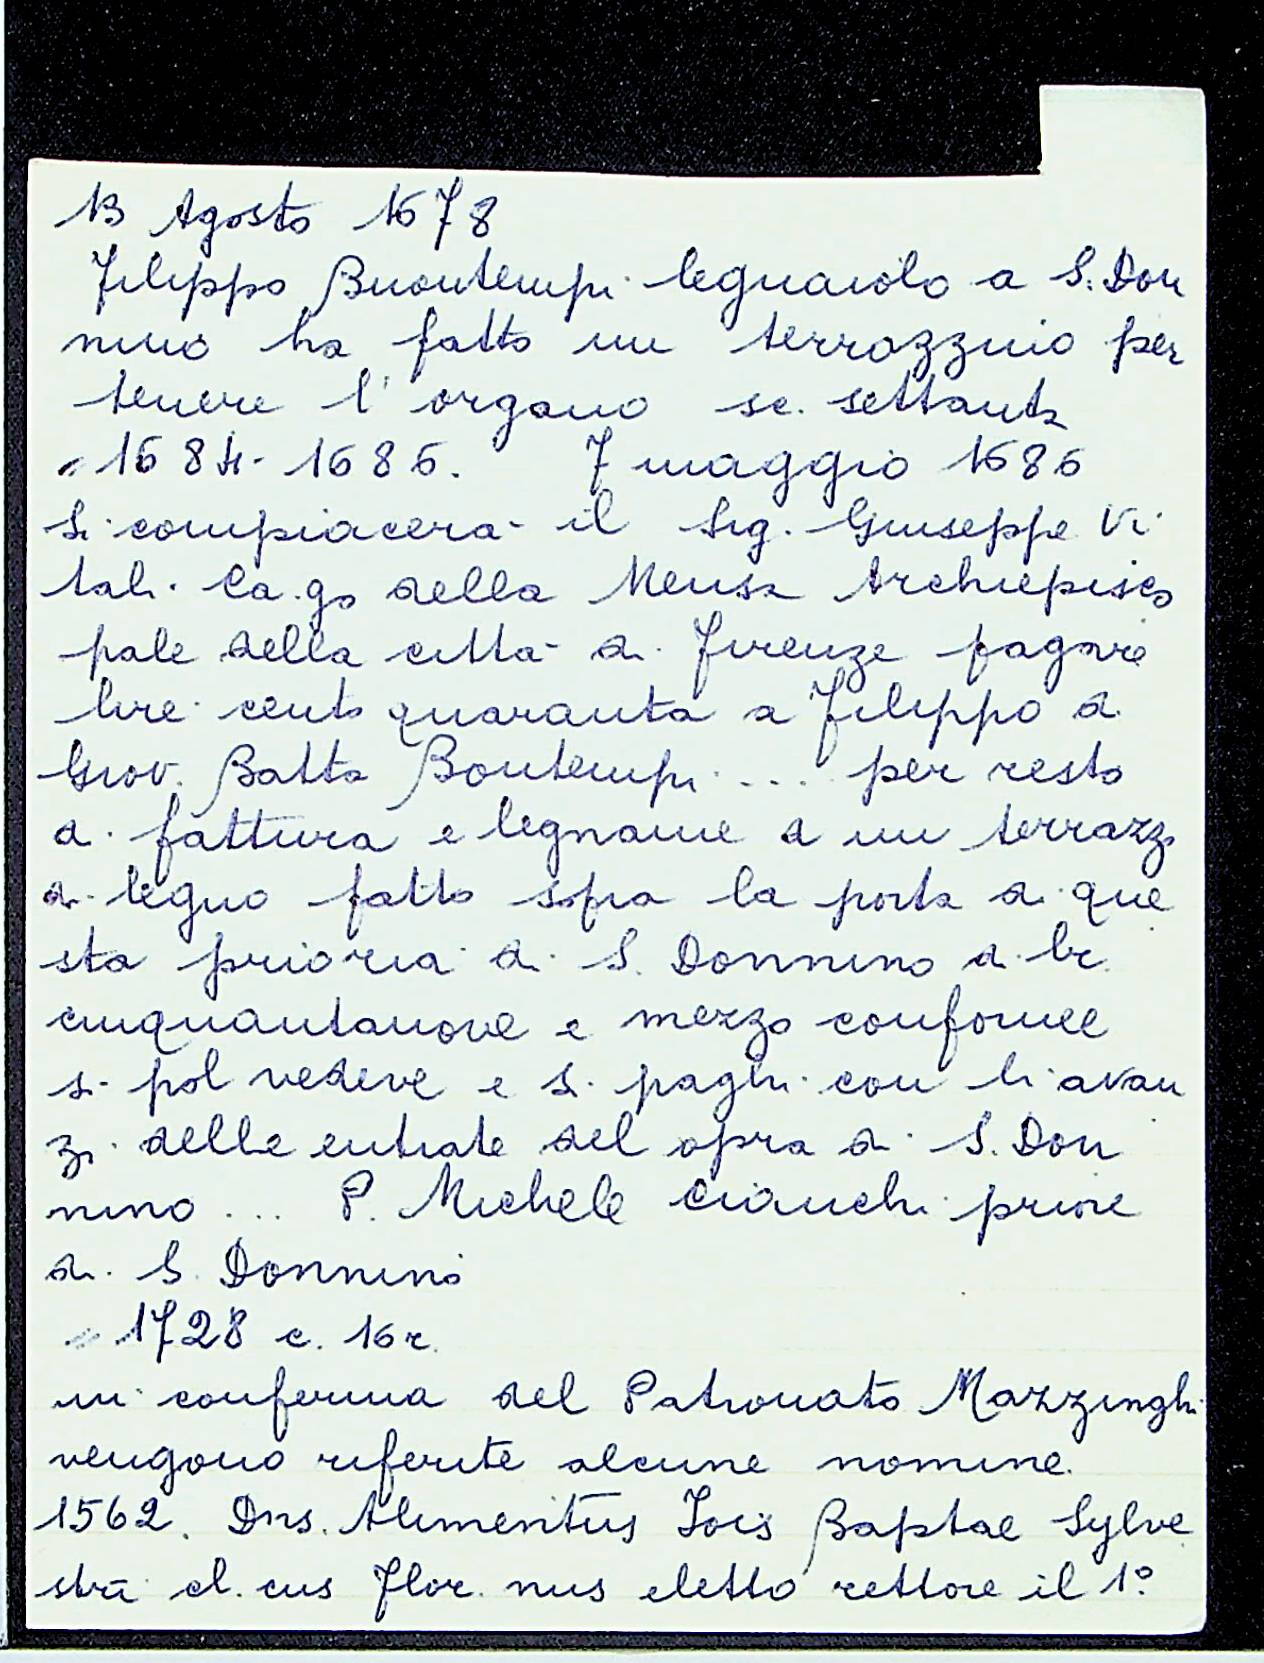 13 Agosto 1678
Filippo Buontempi legnaiolo a S. Don
nino ha fatto un terrazzino per
tenere l'organo sc. settanta
" 1684-1686. 7 maggio 1686
Si compiacerà il Sig. Giuseppe Vi
tali Ca.go della Mensa Archiepisco
pale della città di Firenze pagare
lire cento quaranta a Filippo di
Giov. Batta Bontempi .... per resto
di fattura e legname d un terrazzo
di legno fatto sopra la porta di que
sta prioria di S. Donnino di br.
cinquantanove e mezzo conforme
si pol vedere e si paghi con li avan
zi delle entrate del opra di S. Don
nino ... P. Michele Cianchi priore
di S. Donnino
" 1728 c. 16r.
in conferma del Patronato Mazzinghi
vengono riferite alcune nomine.
1562. Dns. Alimentus Jois Baptae Sylve
stri cl. cus Flor. nus eletto rettore il 1°